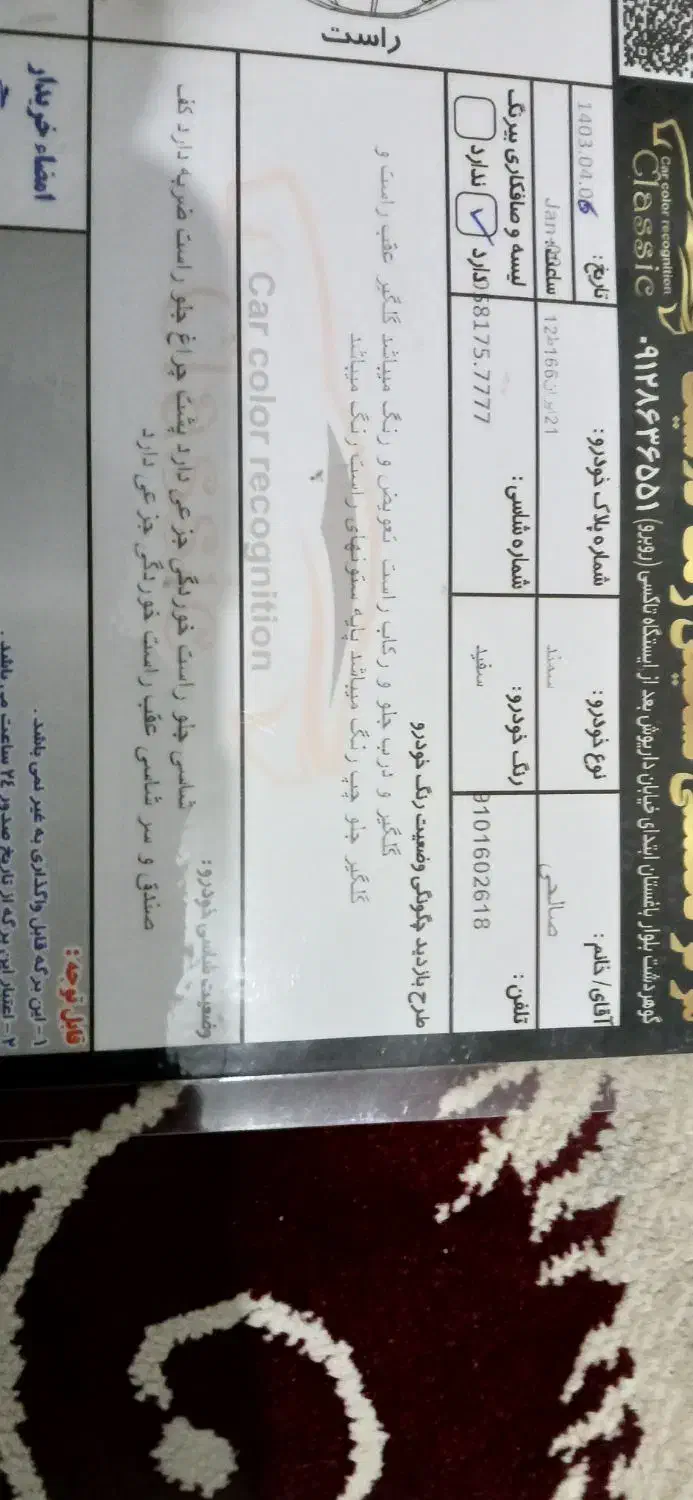 Car color recognition
Classic
گوهردشت بلوار باغستان ابتدای خیابان داریوش بعد از ایستگاه تاکسی (روبرو) ۰۹۱۲۸۶۳۶۵۵۱
آقای/ خانم: صالحی
نوع خودرو: سمند
شماره پلاک خودرو: 21ایران166ط12
تاریخ: 1403.04.06
ساعت:
تلفن: 9101602618
رنگ خودرو: سفید
شماره شاسی: 058175.7777
لیسه و صافکاری بیرنگ
دارد ✓ ندارد
طرح بازدید چگونگی وضعیت رنگ خودرو
گلگیر و درب جلو و رکاب راست تعویض و رنگ میباشد گلگیر عقب راست و
گلگیر جلو چپ رنگ میباشد پایه ستونهای راست رنگ میباشد
Car color recognition
Classic
وضعیت شاسی خودرو:
شاسی جلو راست خوردگی جزعی دارد پشت چراغ جلو راست ضربه دارد کف
صندق و سر شاسی عقب راست خوردگی جزعی دارد
راست
قابل توجه:
۱- این برگه قابل واگذاری به غیر نمی باشد.
۲- اعتبار این برگه از تاریخ صدور ۲۴ ساعت می باشد.
امضاء خریدار